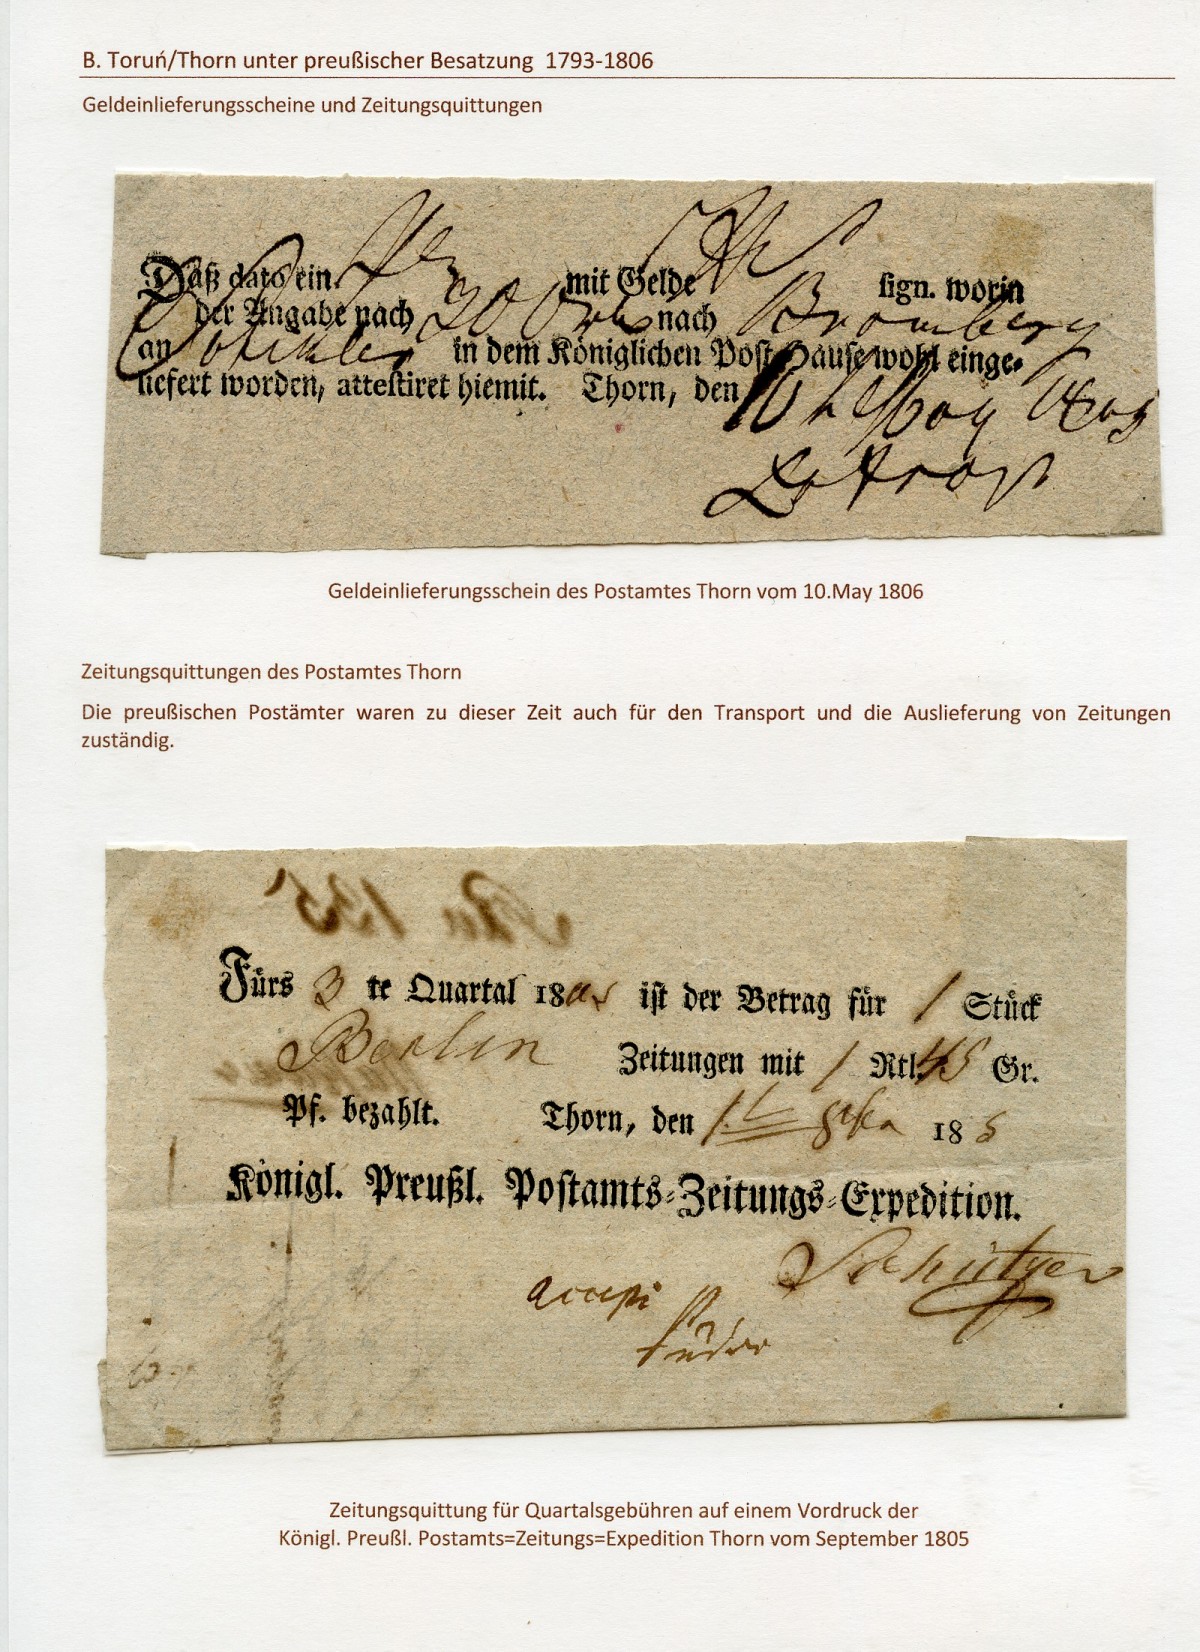 B. Toruń/Thorn unter preußischer Besatzung 1793-1806
Geldeinlieferungsscheine und Zeitungsquittungen
Daß dato ein mit Gelde sign. worin
der Angabe nach 20 nach Bromberg
an in dem Königlichen Post Hause wohl einge-
liefert worden, attestiret hiemit. Thorn, den
10 May 1806
Geldeinlieferungsschein des Postamtes Thorn vom 10.May 1806
Zeitungsquittungen des Postamtes Thorn
Die preußischen Postämter waren zu dieser Zeit auch für den Transport und die Auslieferung von Zeitungen
zuständig.
Fürs 3 te Quartal 1805 ist der Betrag für 1 Stück
Berlin Zeitungen mit 1 Rtl. 45 Gr.
Pf. bezahlt. Thorn, den 1. 18 5
Königl. Preußl. Postamts=Zeitungs=Expedition.
Schützer
accepi
Zeitungsquittung für Quartalsgebühren auf einem Vordruck der
Königl. Preußl. Postamts=Zeitungs=Expedition Thorn vom September 1805